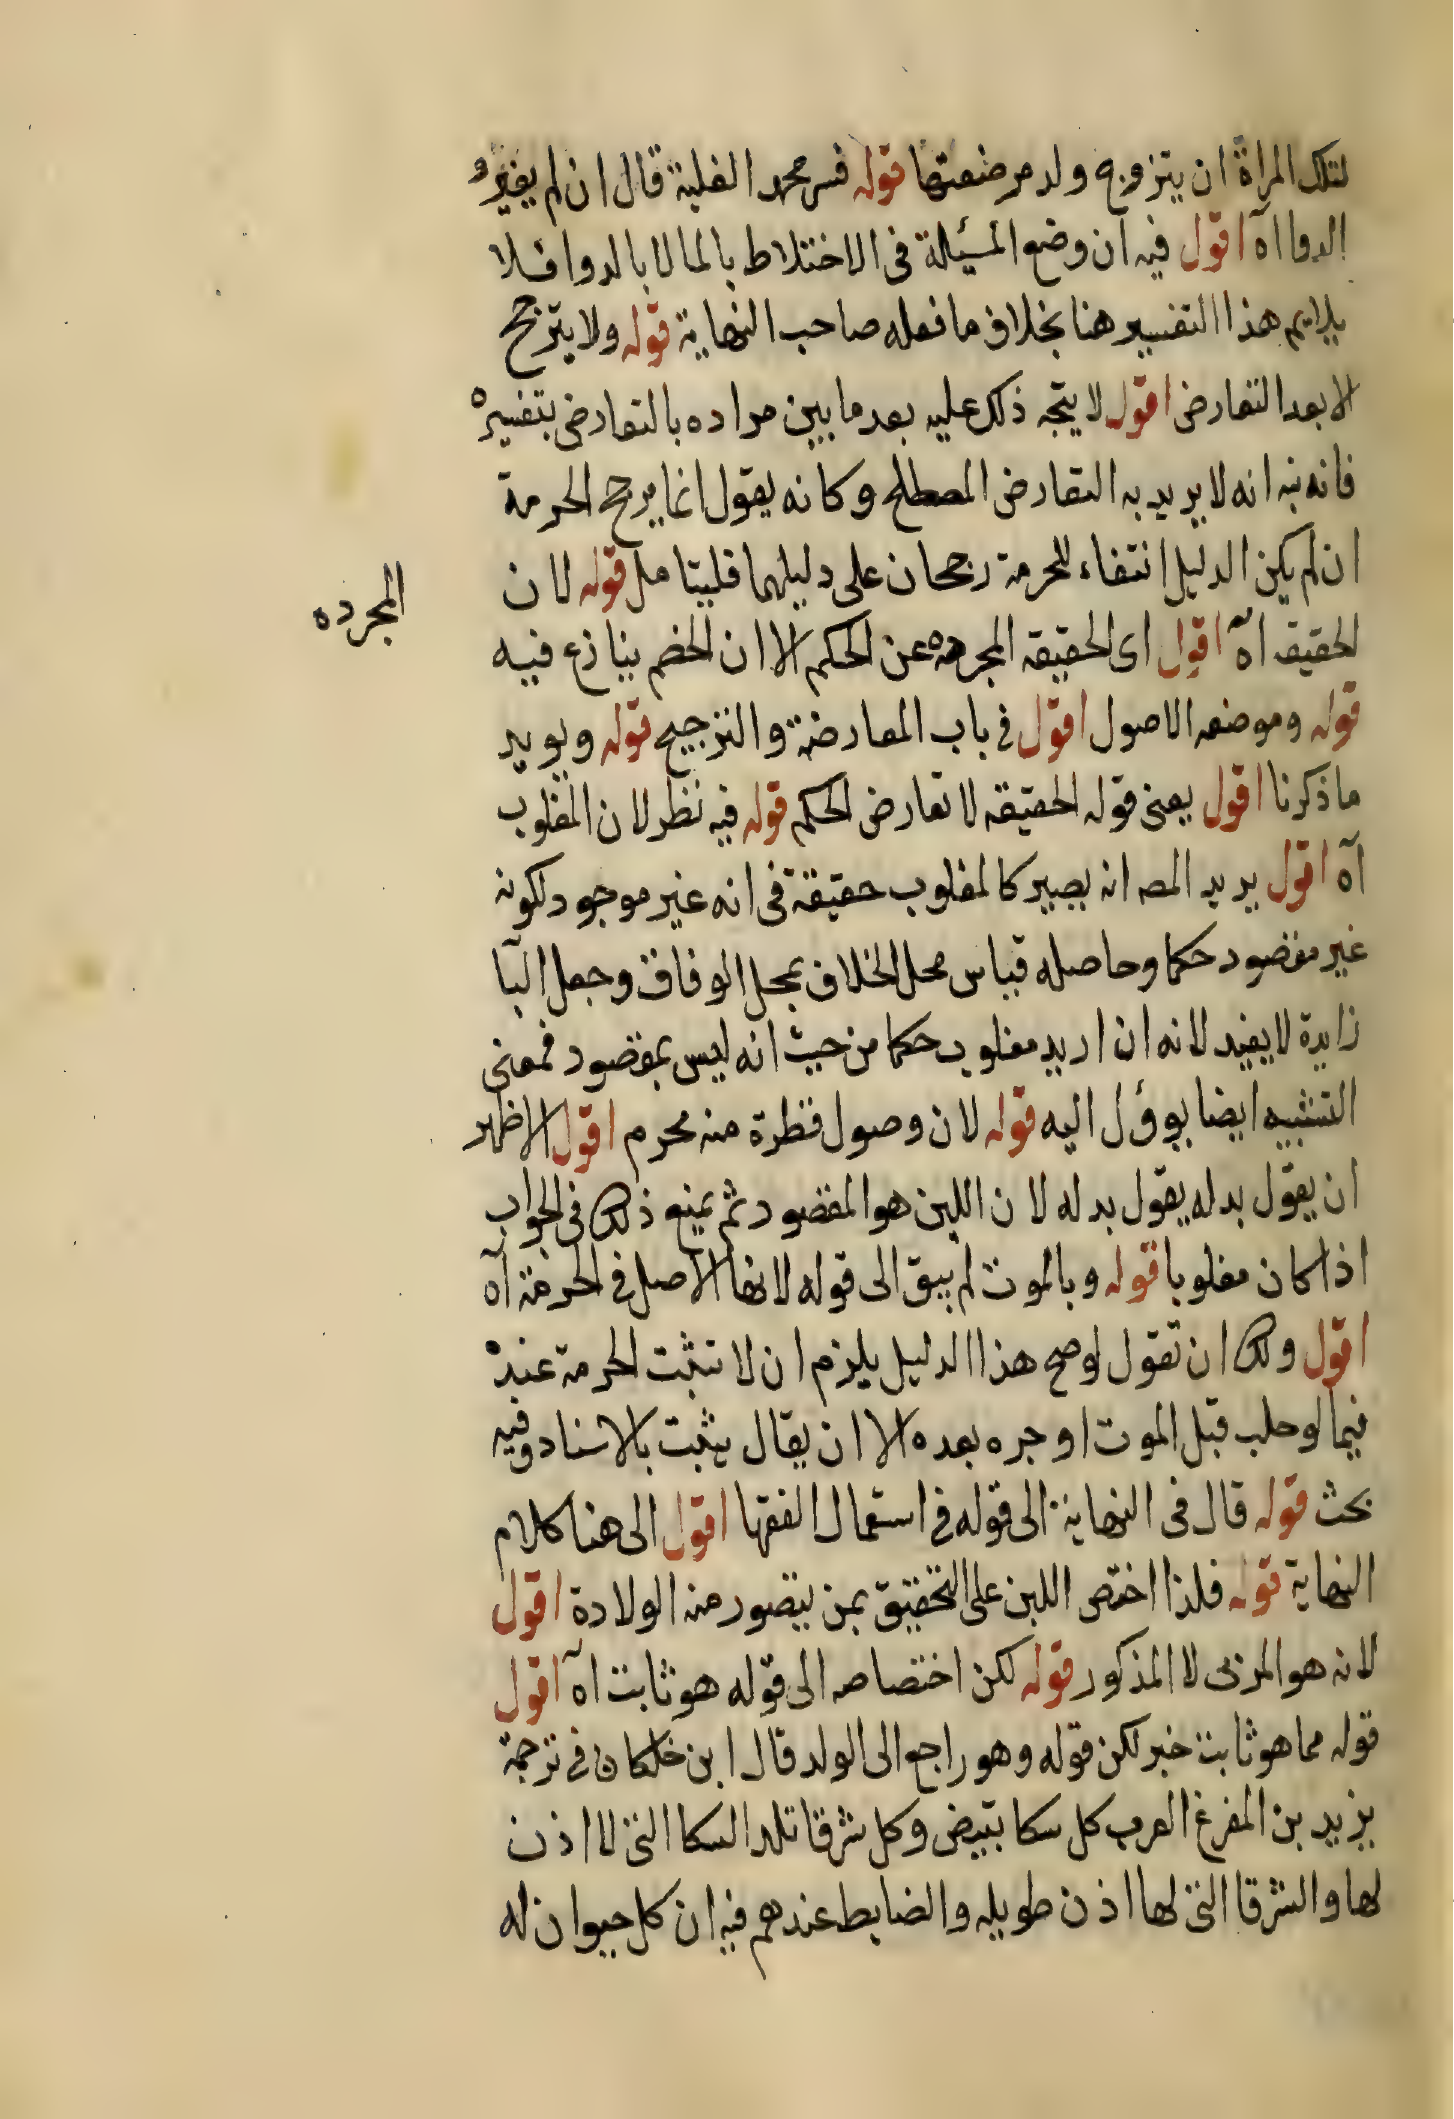 لتلك المراة ان يتزوج ولد مرضعتها قوله فسر محمد الغلبة قال ان لم يغيره
الدوا اه اقول فيه ان وضع المسئلة فى الاختلاط بالما لا بالدوا فلا
يلايم هذا التفسير هنا بخلاف ما فعله صاحب النهاية قوله ولا يترجح
الا بعد التعارض اقول لا يتجه ذلك عليه بعد ما بين مراده بالتعارض بتفسيره
فانه نبه انه لا يريد به التعارض المصطلح وكانه يقول انما يرجح الحرمة
ان لم يكن الدليل انتفاء للحرمة رجحان على دليلهما فليتامل قوله لان
المجرده
الحقيقه اه اقول اى الحقيقه المجرده عن الحكم الا ان الخصم ينازع فيه
قوله وموضعه الاصول اقول فى باب المعارضة والترجيح قوله ويويد
ما ذكرنا اقول يعنى قوله الحقيقه لا تعارض الحكم قوله فيه نظر لان المغلوب
آه اقول يريد المصه انه يصير كالمغلوب حقيقة فى انه غير موجود لكونه
غير مقصود حكما وحاصله قياس محل الخلاف بمحل الوفاق وجعل البآ
زايدة لا يفيد لانه ان اريد مغلوب حكما من حيث انه ليس بمقصود فمعنى
التشبيه ايضا يوؤل اليه قوله لان وصول قطرة منه محرم اقول الاظهر
ان يقول بدله يقول بدله لان اللبن هو المقصود ثم يمنع ذلك فى الجواب
اذا كان مغلوبا قوله وبالموت لم يبق الى قوله لانها الاصل فى الحرمة آه
اقول ولك ان تقول لوصح هذا الدليل يلزم ان لا تثبت الحرمة عنده
فيما لو حلب قبل الموت اوجره بعده الا ان يقال يثبت بالاسناد وفيه
بحث قوله قال فى النهاية الى قوله فى استعمال الفقها اقول الى هنا كلام
النهاية قوله فلذا اختص اللبن على التحقيق بمن يتصور منه الولادة اقول
لانه هو المربى لا المذكور قوله لكن اختصاصه الى قوله هو ثابت اه اقول
قوله مما هو ثابت خبر لكن قوله وهو راجع الى الولد قال ابن خلكان فى ترجمة
يزيد بن المفرغ العرب كل سكا تبيض وكل شرقا تلد السكا التى لا اذن
لها والشرقا التى لها اذن طويله والضابط عندهم فيه ان كل حيوان له